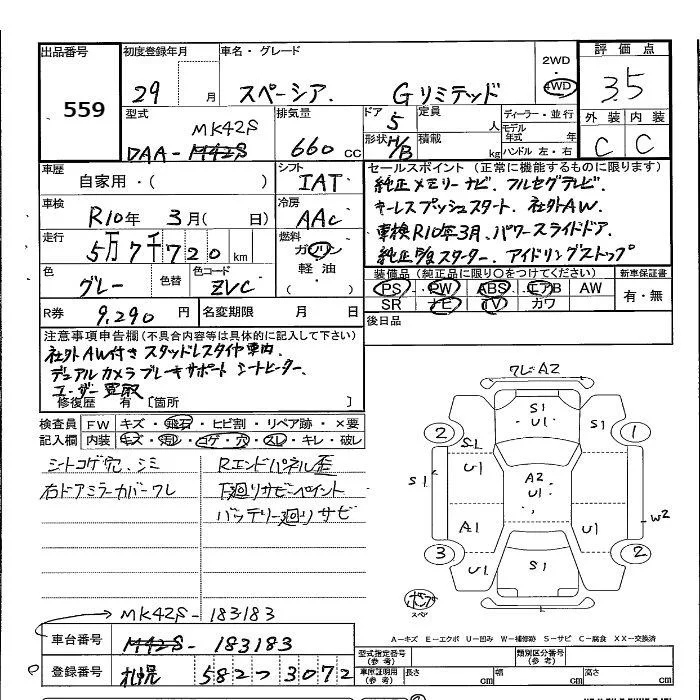 出品番号 初度登録年月 車名・グレード 評価点
559 29 月 スペーシア Gリミテッド 2WD 4WD 3.5
型式 排気量 ドア 5 定員 人 ディーラー・並行 外装 内装
MK42S モデル年式 年
DAA-M42S 660 cc 形状 H/B 積載 kg ハンドル 左・右 C C
車歴 シフト セールスポイント (正常に機能するものに限ります)
自家用・( ) IAT 純正メモリーナビ. フルセグテレビ.
車検 冷房 キーレスプッシュスタート. 社外AW.
R10年 3月( 日) AAC 車検R10年3月. パワースライドドア.
走行 燃料 純正 スターター. アイドリングストップ
5万7千720km ガソリン 軽油
色 色替 色コード 装備品 (純正品に限り○をつけてください) 新車保証書
グレー ZVC PS PW ABS エアB AW 有・無
SR ナビ TV カワ
R券 9,290 円 名変期限 月 日 後日品
注意事項申告欄 (不具合内容等は具体的に記入して下さい)
社外AW付きスタッドレスタイヤ車内.
デュアルカメラブレーキサポート シートヒーター.
ユーザー買取
修復歴 有 [箇所 ]
検査員記入欄 FW キズ・飛石・ヒビ割・リペア跡・×要
内装 キズ・汚レ・コゲ・穴・スレ・キレ・破レ
シートコゲ穴. シミ Rエンドパネル歪
右ドアミラーカバーワレ 下廻りサビペイント
バッテリー廻りサビ
ワレ A2
S1 U1 S1
2 1
S1 U1
S1 A2 U1
W2
A1 U1
3 2
U1 S1 U1
スペ
MK42S-183183
車台番号 M42S-183183
登録番号 札幌 582つ3072
A-キズ E-エクボ U-凹み W-補修跡 S-サビ C-腐食 XX-交換済
型式指定番号 (参考) 類別区分番号 (参考)
車庫証明用 (参考) 長さ cm 幅 cm 高さ cm